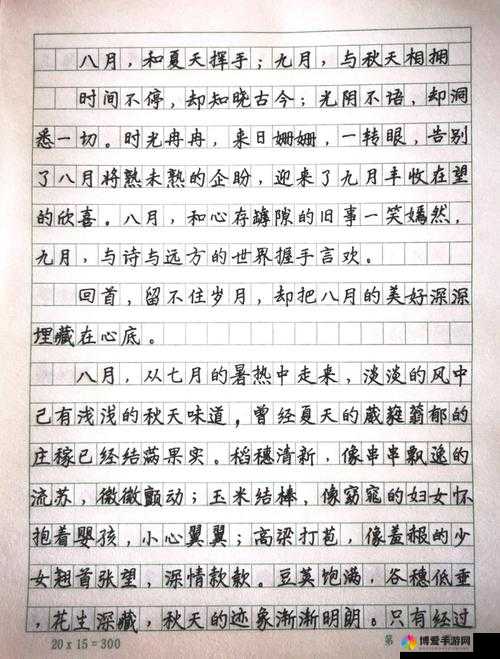 八月，和夏天挥手；九月，与秋天相拥
时间不停，却知晓古今；光阴不语，却洞
悉一切。时光冉冉，来日姗姗，一转眼，告别
了八月将熟未熟的企盼，迎来了九月丰收在望
的欣喜。八月，和心存罅隙的旧事一笑嫣然，
九月，与诗与远方的世界握手言欢。
回首，留不住岁月，却把八月的美好深深
埋藏在心底。
八月，从七月的暑热中走来，淡淡的风中
已有浅浅的秋天味道，曾经夏天的葳蕤蓊郁的
庄稼已经结满果实。稻穗清新，像串串飘逸的
流苏，微微颤动；玉米结棒，像窈窕的妇女怀
抱着婴孩，小心翼翼；高粱打苞，像羞赧的少
女翘首张望，深情款款。豆荚饱满，谷穗低垂
，花生深藏，秋天的迹象渐渐明朗。只有经过
20 x 15 = 300
第
博爱手游网